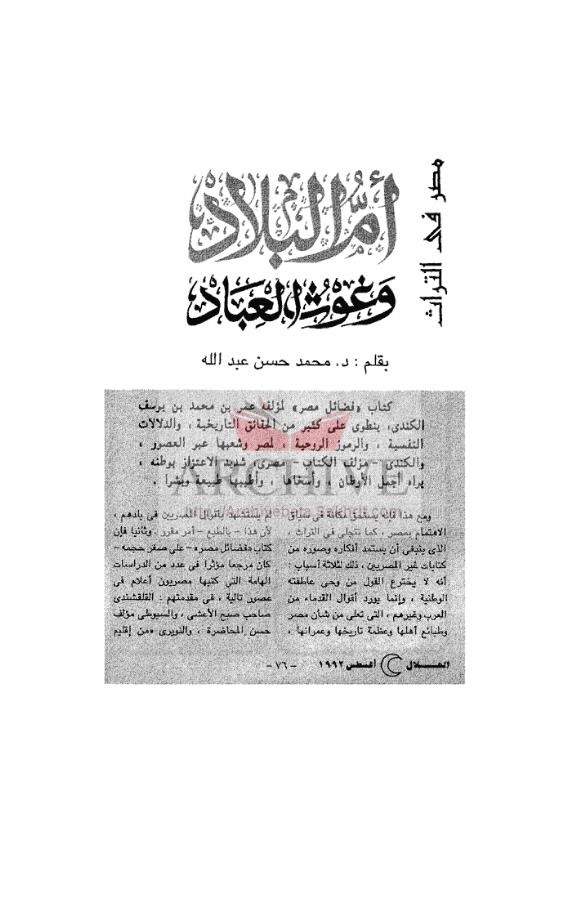 مصر فى التراث
أم البلاد
وغوث العباد
بقلم : د. محمد حسن عبد الله
كتاب «فضائل مصر» لمؤلفه عمر بن محمد بن يوسف
الكندى، ينطوى على كثير من الحقائق التاريخية ، والدلالات
النفسية ، والرموز الروحية ، لمصر وشعبها عبر العصور ،
والكندى – مؤلف الكتاب – مصرى، شديد الاعتزاز بوطنه ،
يراه أجمل الأوطان ، وأسخاها ، وأطيبها طبيعة وبشرا .
ARCHIVE
ومع هذا فإنه يستحق مكانة فى سياق
الاهتمام بمصر ، كما تتجلى فى التراث ،
الذى ينبغى أن يستمد أفكاره وصوره من
كتابات غير المصريين ، ذلك لثلاثة أسباب :
أنه لا يخترع القول من وحى عاطفته
الوطنية ، وإنما يورد أقوال القدماء من
العرب وغيرهم ، التى تعلى من شأن مصر
وطبائع أهلها وعظمة تاريخها وعمرانها ،
لم يستشهد بأقوال المصريين فى بلدهم ،
لأن هذا – بالطبع – أمر مقرر . وثانيا فإن
كتاب «فضائل مصر» – على صغر حجمه –
كان مرجعا مؤثرا فى عدد من الدراسات
الهامة التى كتبها مصريون أعلام فى
عصور تالية ، فى مقدمتهم : القلقشندى
صاحب صبح الأعشى ، والسيوطى مؤلف
حسن المحاضرة ، والنويرى «من إقليم
الهلال أغسطس ١٩٩٢
– ٧٦ –